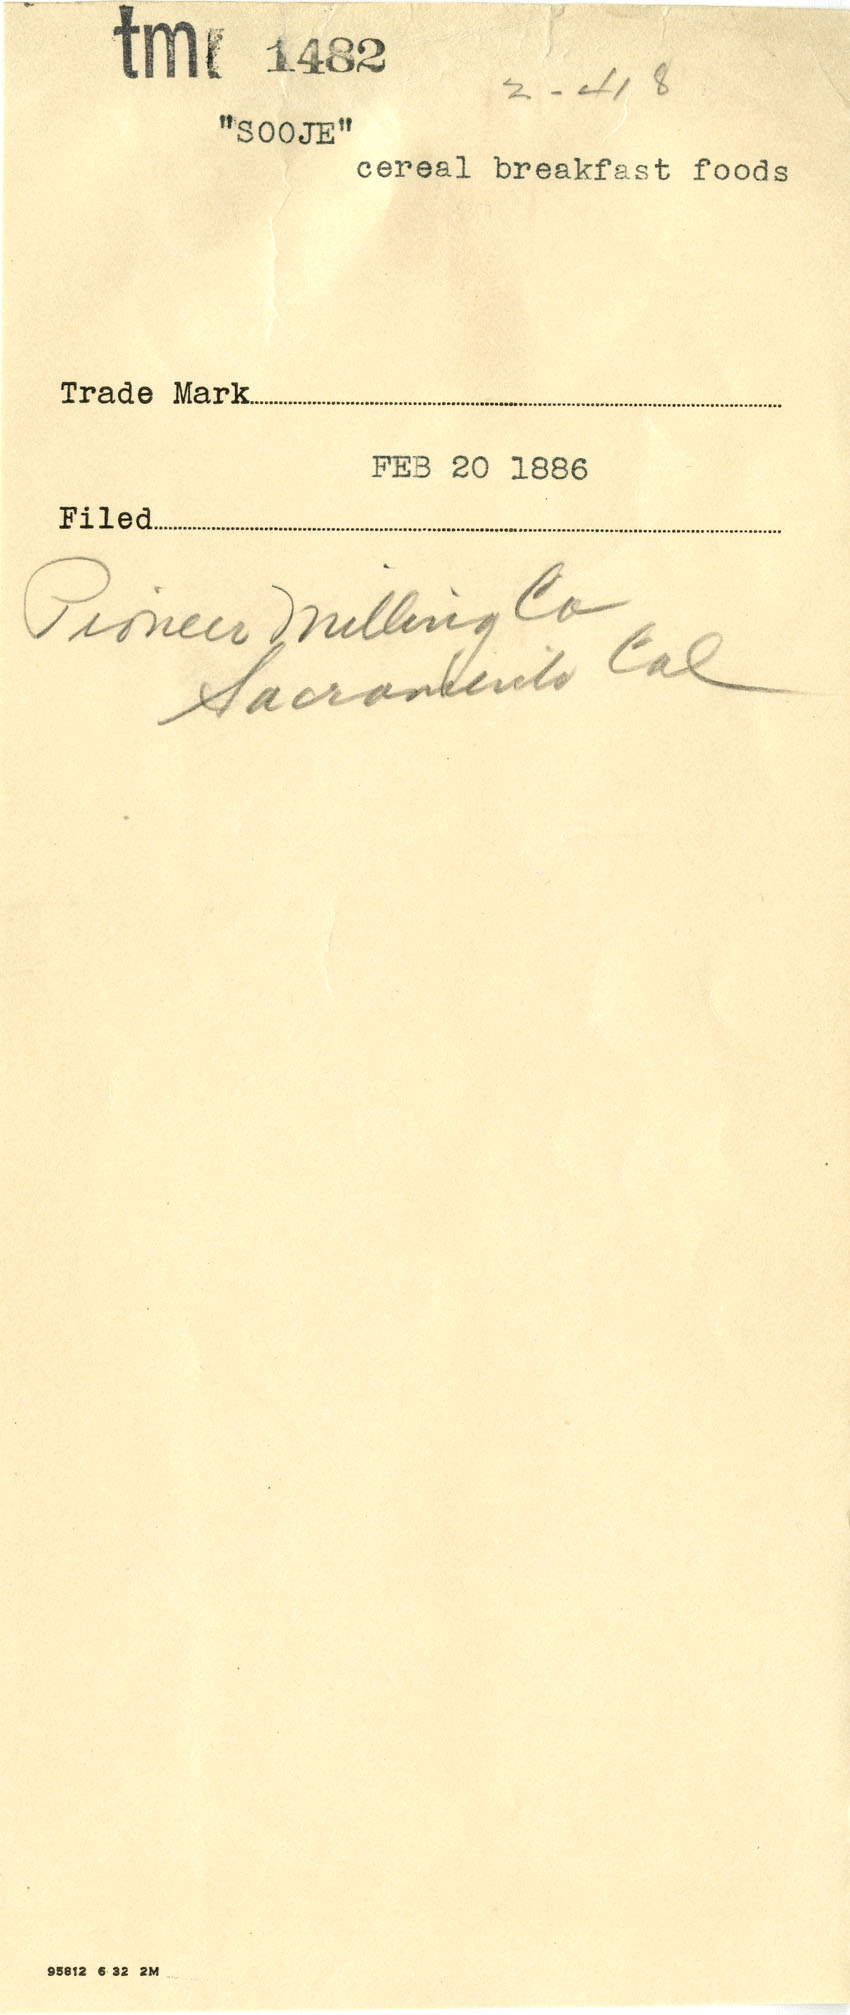 tm 1482
2-418
"SOOJE"
cereal breakfast foods
Trade Mark
FEB 20 1886
Filed
Pioneer Milling Co
Sacramento Cal
95812 6 32 2M